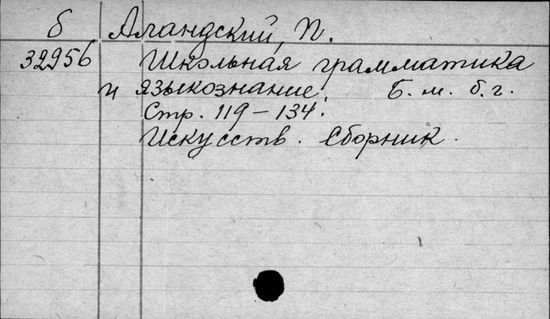 б Аландский, П.
32956 Школьная грамматика
и языкознание. Б. м. б. г.
Стр. 119-134.
Искусств. Сборник.